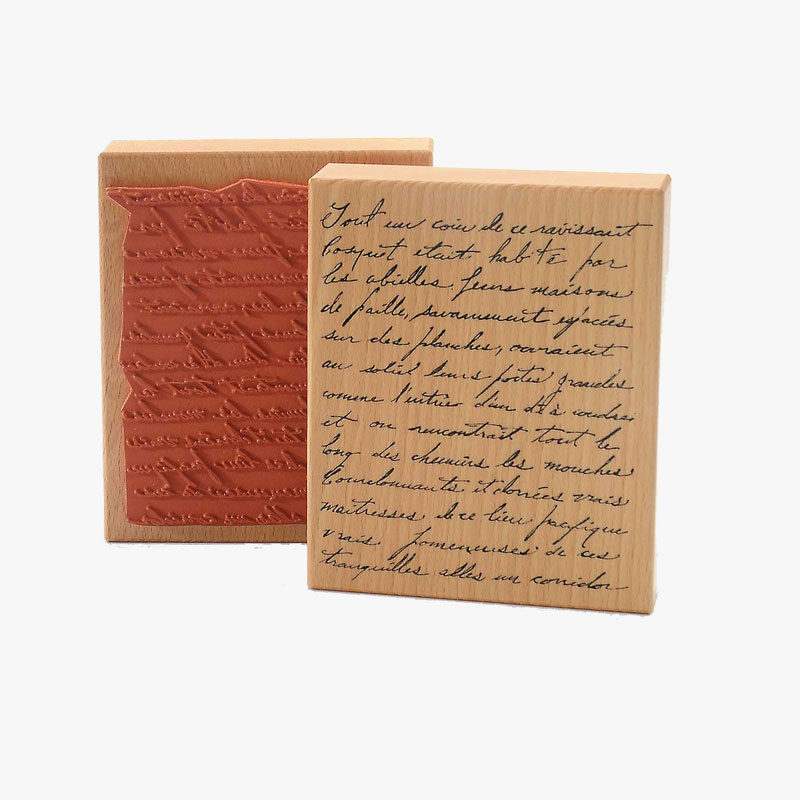 Tout un coin de ce ravissant
bosquet etait habité par
les abeilles. Leurs maisons
de paille, savamment espacées
sur des planches, ouvraient
au soleil leurs portes grandes
comme l'entrée d'un dé à coudre
et on rencontrait tout le
long des chemins les mouches
bourdonnants et dorées vrais
maitresses de ce lieu pacifique
vrais promeneuses de ces
tranquilles allés un corridor